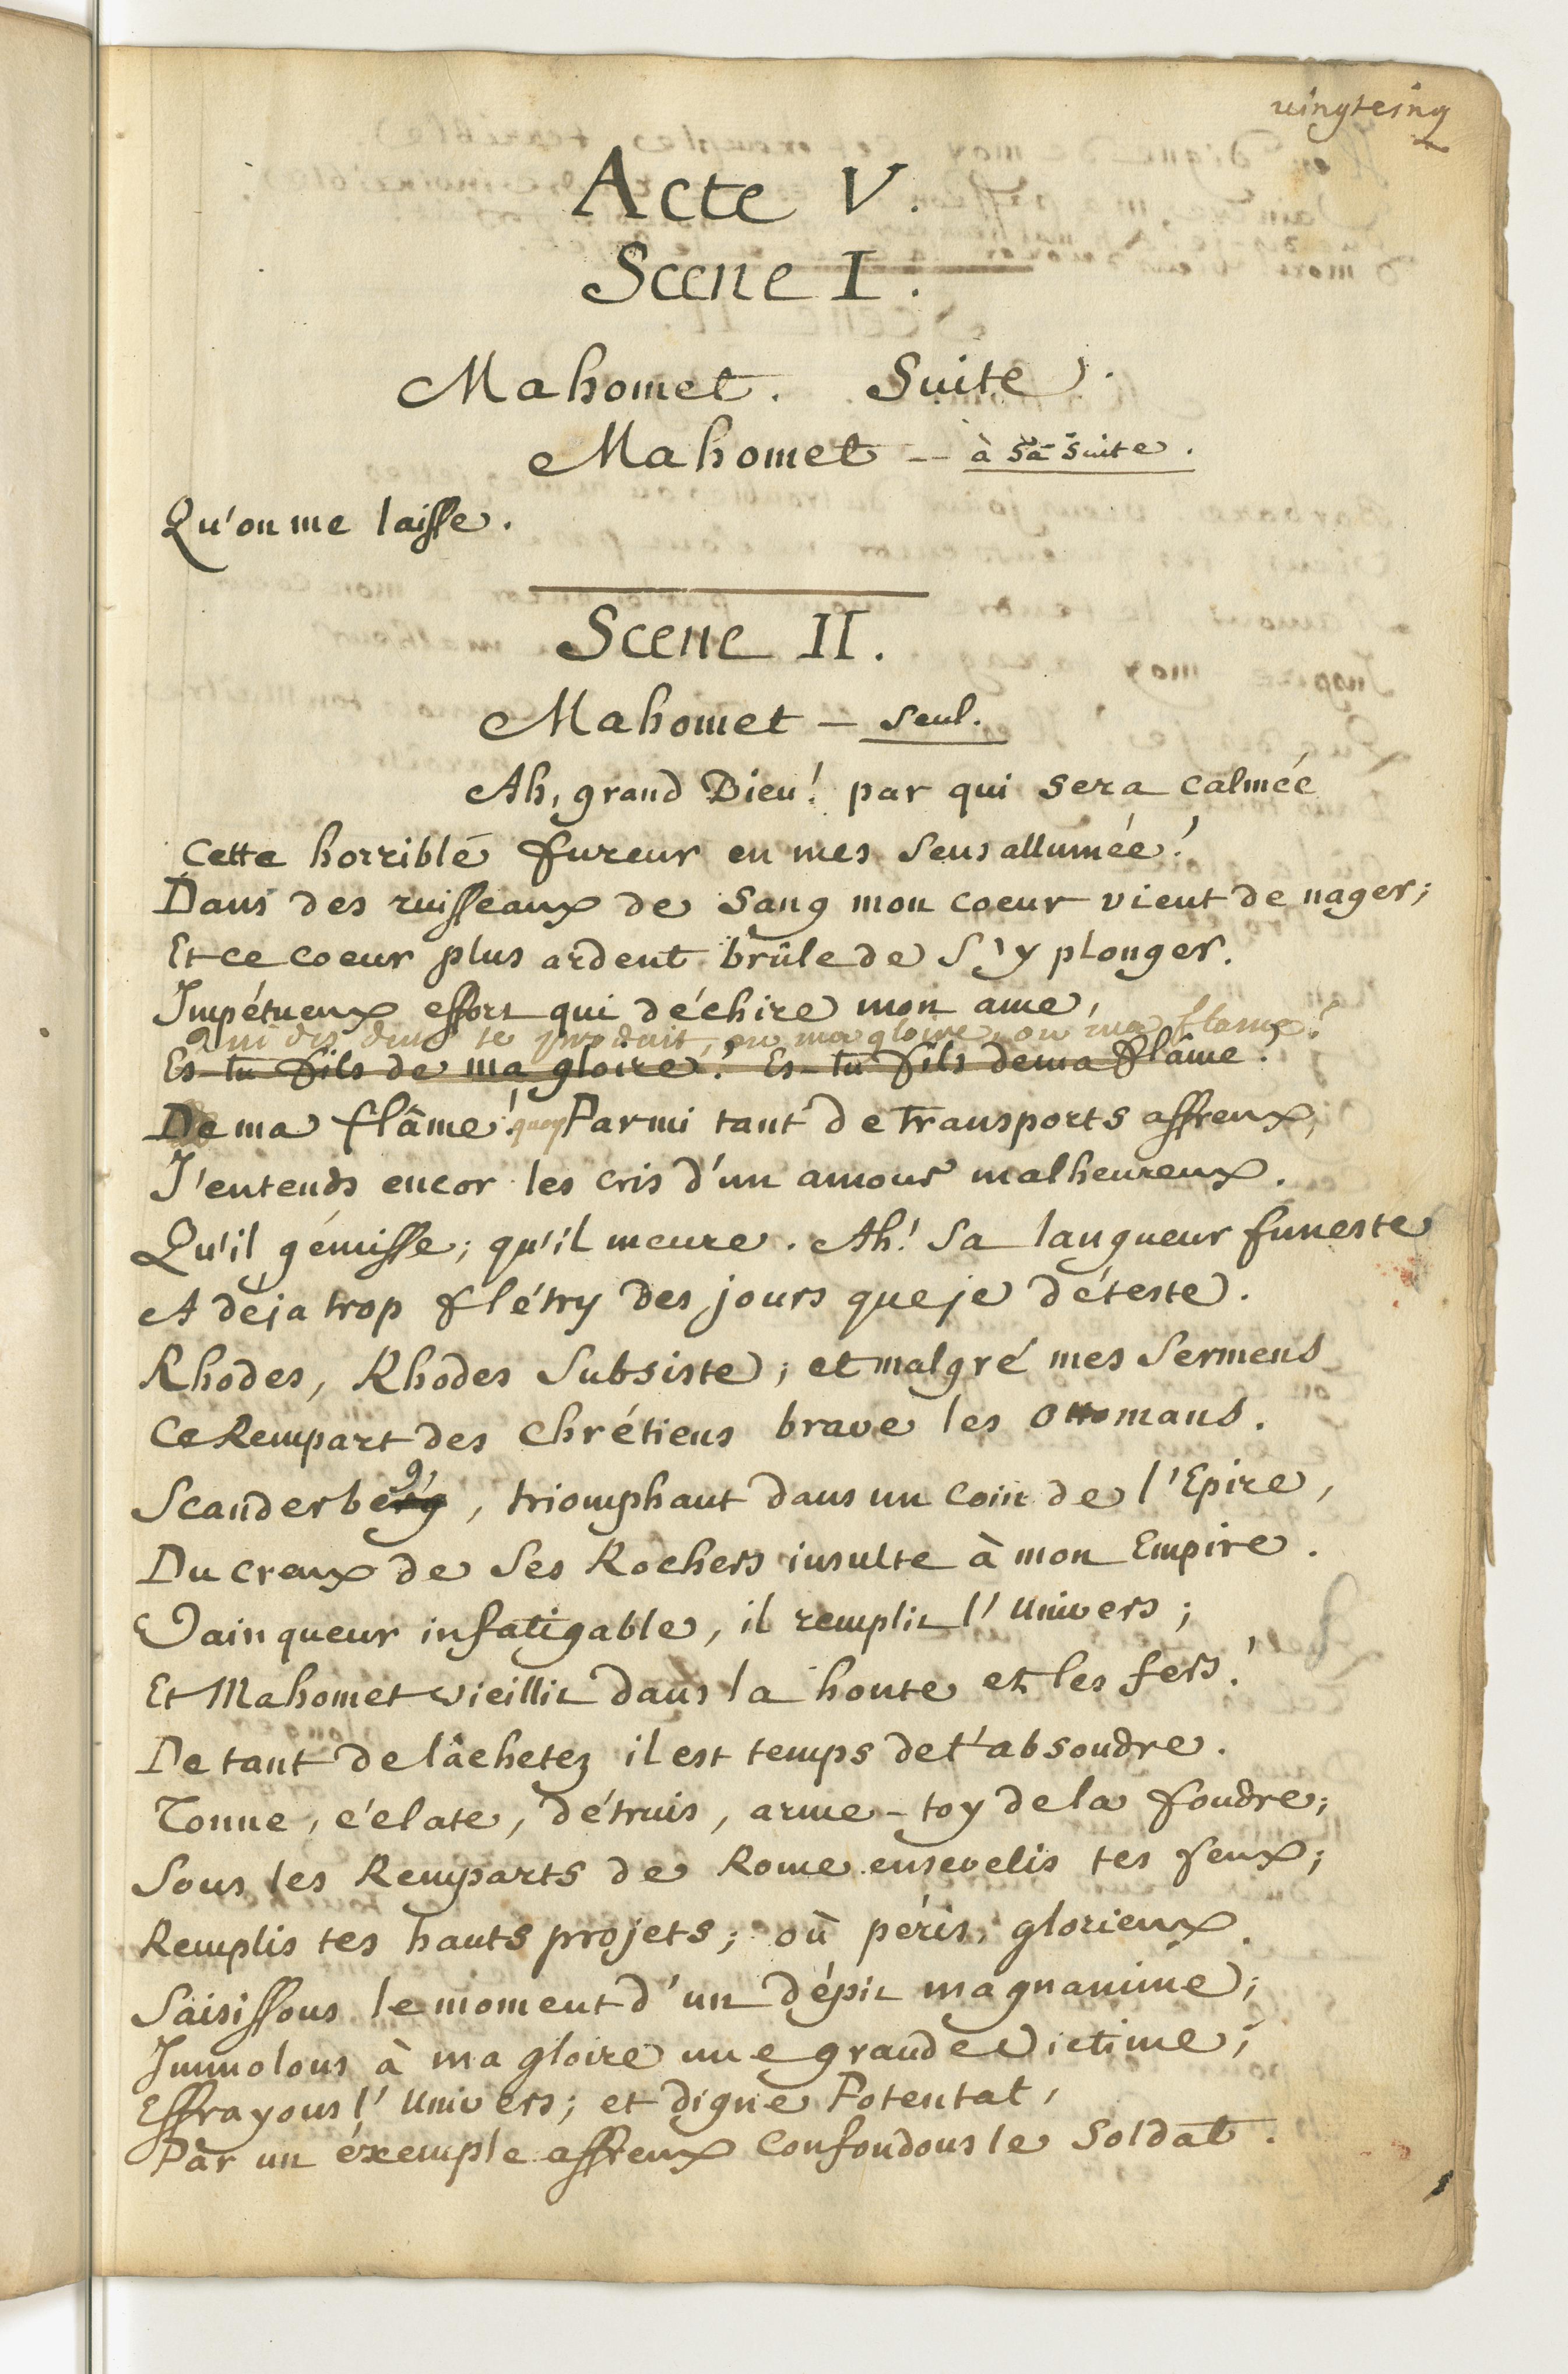 vingtcinq
Acte V.
Scene I.
Mahomet. Suite.
Mahomet – à sa suite.
Qu'on me laisse.
Scene II.
Mahomet – seul.
Ah, grand Dieu! par qui sera calmée
Cette horrible fureur en mes sens allumée!
Dans des ruisseaux de sang mon coeur vient de nager;
Et ce coeur plus ardent brûle de s'y plonger.
Impétueux effort qui déchire mon ame,
Qui dis donc te produit, ou ma gloire, ou ma flame?
Es-tu fils de ma gloire? Es-tu fils de ma flâme?
De ma flâme! quoy Parmi tant de transports affreux,
J'entends encor les cris d'un amour malheureux.
Qu'il gémisse; qu'il meure. Ah! sa langueur funeste
A déja trop flétry des jours que je déteste.
Rhodes, Rhodes subsiste; et malgré mes sermens
Ce Rempart des Chrétiens brave les Ottomans.
Scanderberg, triomphant dans un coin de l'Epire,
Du creux de ses Rochers insulte à mon Empire.
Vainqueur infatigable, il remplit l'Univers;
Et Mahomet vieillit dans la honte et les fers!
De tant de lâchetez il est temps de t'absoudre.
Tonne, éclate, détruis, arme-toy de la foudre;
Sous les Remparts de Rome ensevelis tes feux;
Remplis tes hauts projets; où péris, glorieux.
Saisissons le moment d'un dépit magnanime;
Immolons à ma gloire une grande Victime;
Effrayons l'Univers; et digne Potentat,
Par un éxemple affreux confondons le Soldat.